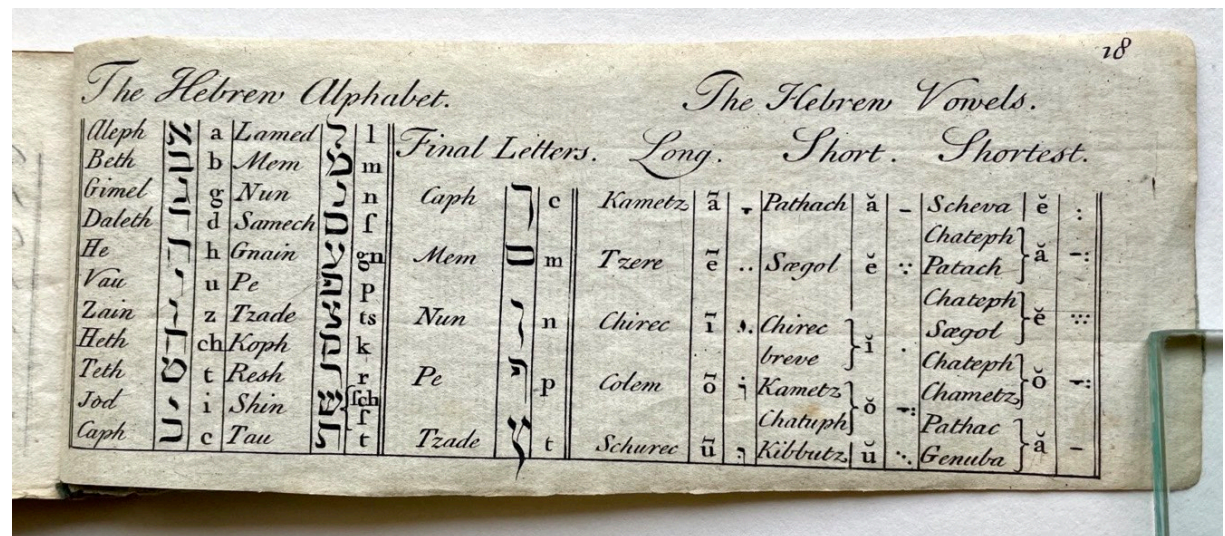 18
The Hebrew Alphabet.
Aleph א a Lamed ל l
Beth ב b Mem מ m
Gimel ג g Nun נ n
Daleth ד d Samech ס ſ
He ה h Gnain ע gn
Vau ו u Pe פ p
Zain ז z Tzade צ ts
Heth ח ch Koph ק k
Teth ט t Resh ר r
Jod י i Shin ש ſch ſ
Caph כ c Tau ת t
Final Letters.
Caph ך c
Mem ם m
Nun ן n
Pe ף p
Tzade ץ t
The Hebrew Vowels.
Long. Short. Shortest.
Kametz ā Pathach ă Scheva ĕ
Tzere ē Sægol ĕ Chateph Patach ă
Chirec ī Chirec breve ĭ Chateph Sægol ĕ
Colem ō Kametz Chatuph ŏ Chateph Chametz ŏ
Schurec ū Kibbutz ŭ Pathac Genuba ă